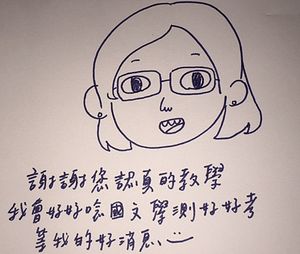 謝謝您認真的教學
我會好好唸國文學測好好考
等我的好消息